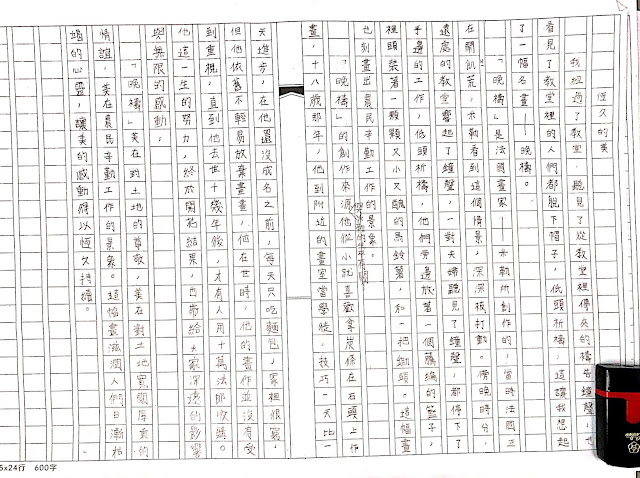 恆久的美
我經過了教堂，聽見了從教堂裡傳來的禱告鐘聲，也
看見了教堂裡的人們都脫下帽子，低頭祈禱，這讓我想起
了一幅名畫——晚禱。
「晚禱」是法國畫家——米勒所創作的，當時法國正
在鬧飢荒，米勒看到這個情景，深深被打動。傍晚時分，
遠處的教堂響起了鐘聲，一對夫婦聽見了鐘聲，都停下了
手邊的工作，低頭祈禱，他們旁邊放著一個藤編的籃子，
裡頭裝著一顆顆又小又醜的馬鈴薯，和一把鋤頭。這幅畫
也刻畫出農民辛勤工作的景象。
「晚禱」的創作來源他從小就喜歡拿炭條在石頭上作
畫，十八歲那年，他到附近的畫室當學徒，技巧一天比一
天進步，在他還沒成名之前，每天只吃麵包，家裡很窮，
但他依舊不輕易放棄畫畫，他在世時，他的畫作並沒有受
到重視，直到他去世十幾年後，才有人用十萬法郎收購。
他這一生的努力，終於開花結果，也帶給大家深遠的影響
與無限的感動。
「晚禱」美在對土地的尊敬，美在對土地厚重的
情誼，美在農民辛勤工作的景象。這幅畫滋潤人們日漸枯
竭的心靈，讓美的感動得以恆久持續。
5x24行 600字